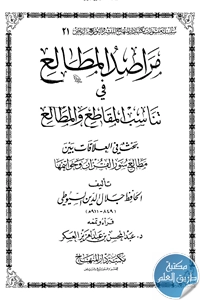 ٢١
مراصد المطالع
في
تناسب المقاطع والمطالع
بحث في العلاقات بين
مطالع سور القرآن وخواتمها
تأليف
الحافظ جلال الدين السيوطي
(٨٤٩ - ٩١١هـ)
قرأه وتممه
د. عبد المحسن بن عبد العزيز العسكر
مكتبة دار المنهاج
مكتبة
طريق العلم